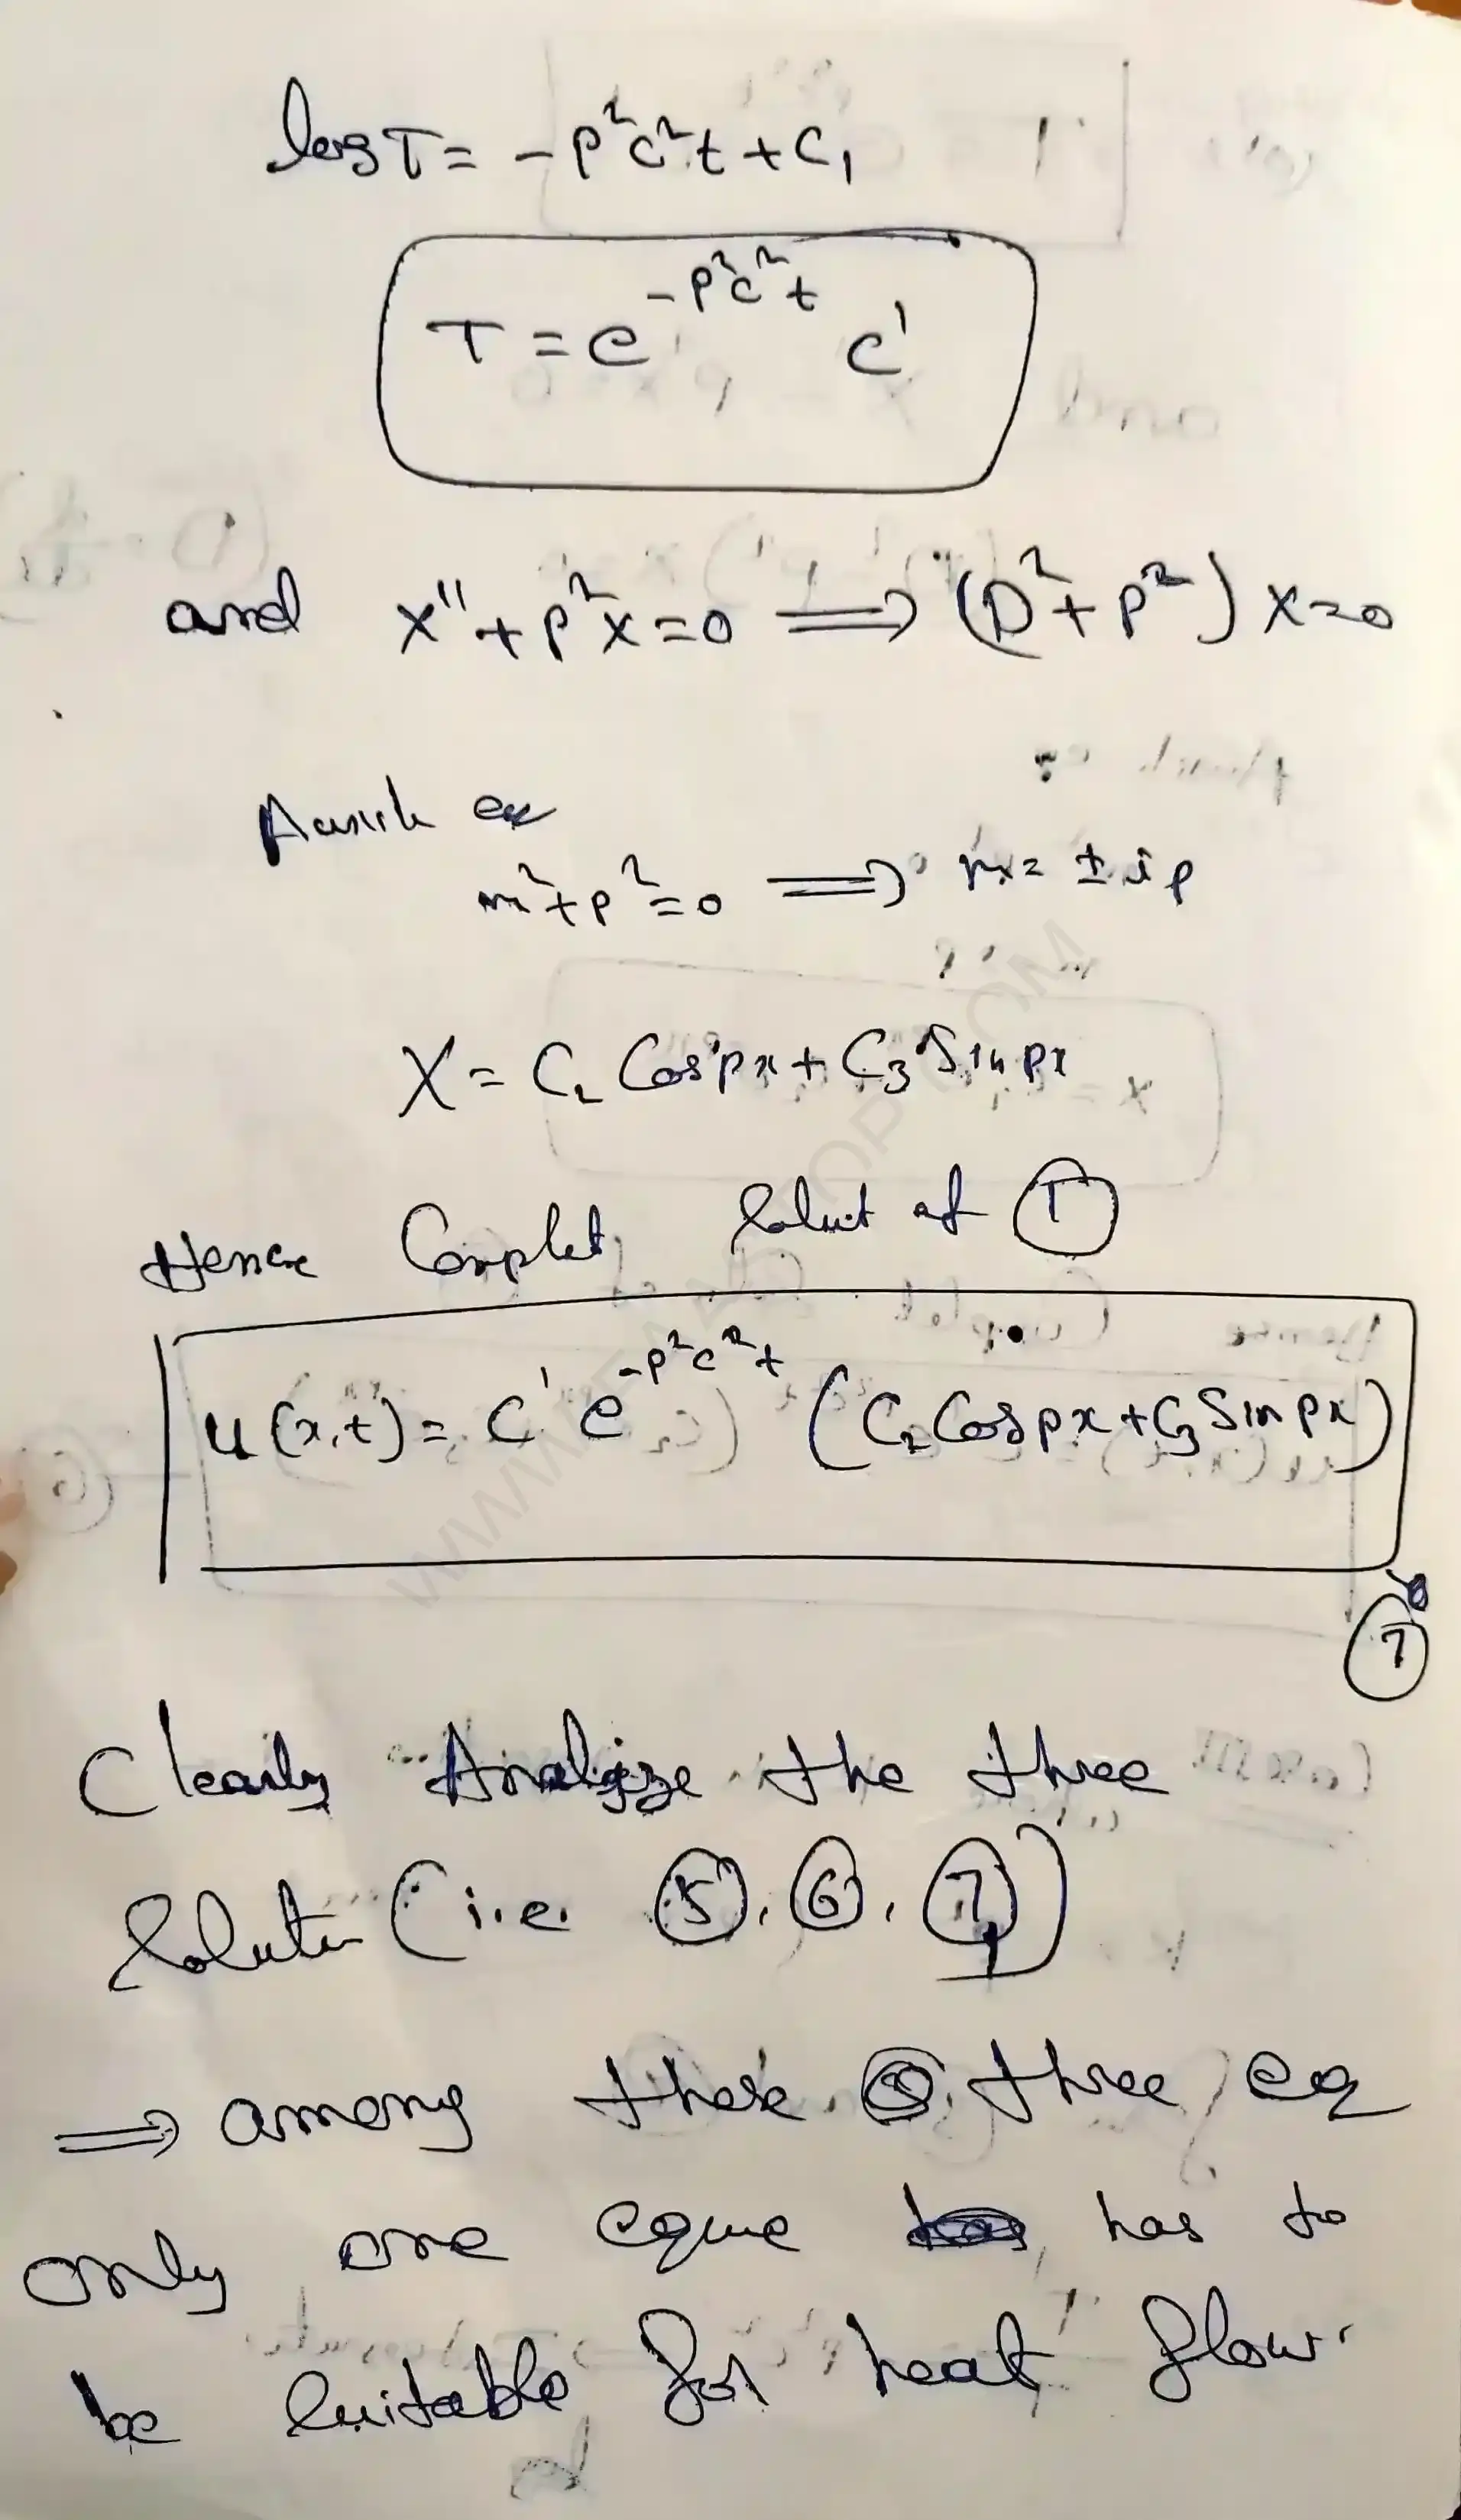 log T = -p²c²t + c₁
T = e^{-p²c²t} c'
and x'' + p²x = 0 ⟹ (D² + p²) x = 0
m² + p² = 0 ⟹ m = ± i p
X = C₂ Cos px + C₃ Sin px
Hence Complet Solut of ①
u(x,t) = c' e^{-p²c²t} (C₂ Cos px + C₃ Sin px)
⑦
Clearly Analyze the three
(i.e. ⑤, ⑥, ⑦)
⟹ among these three eq
only one has to
be suitable for heat flow.